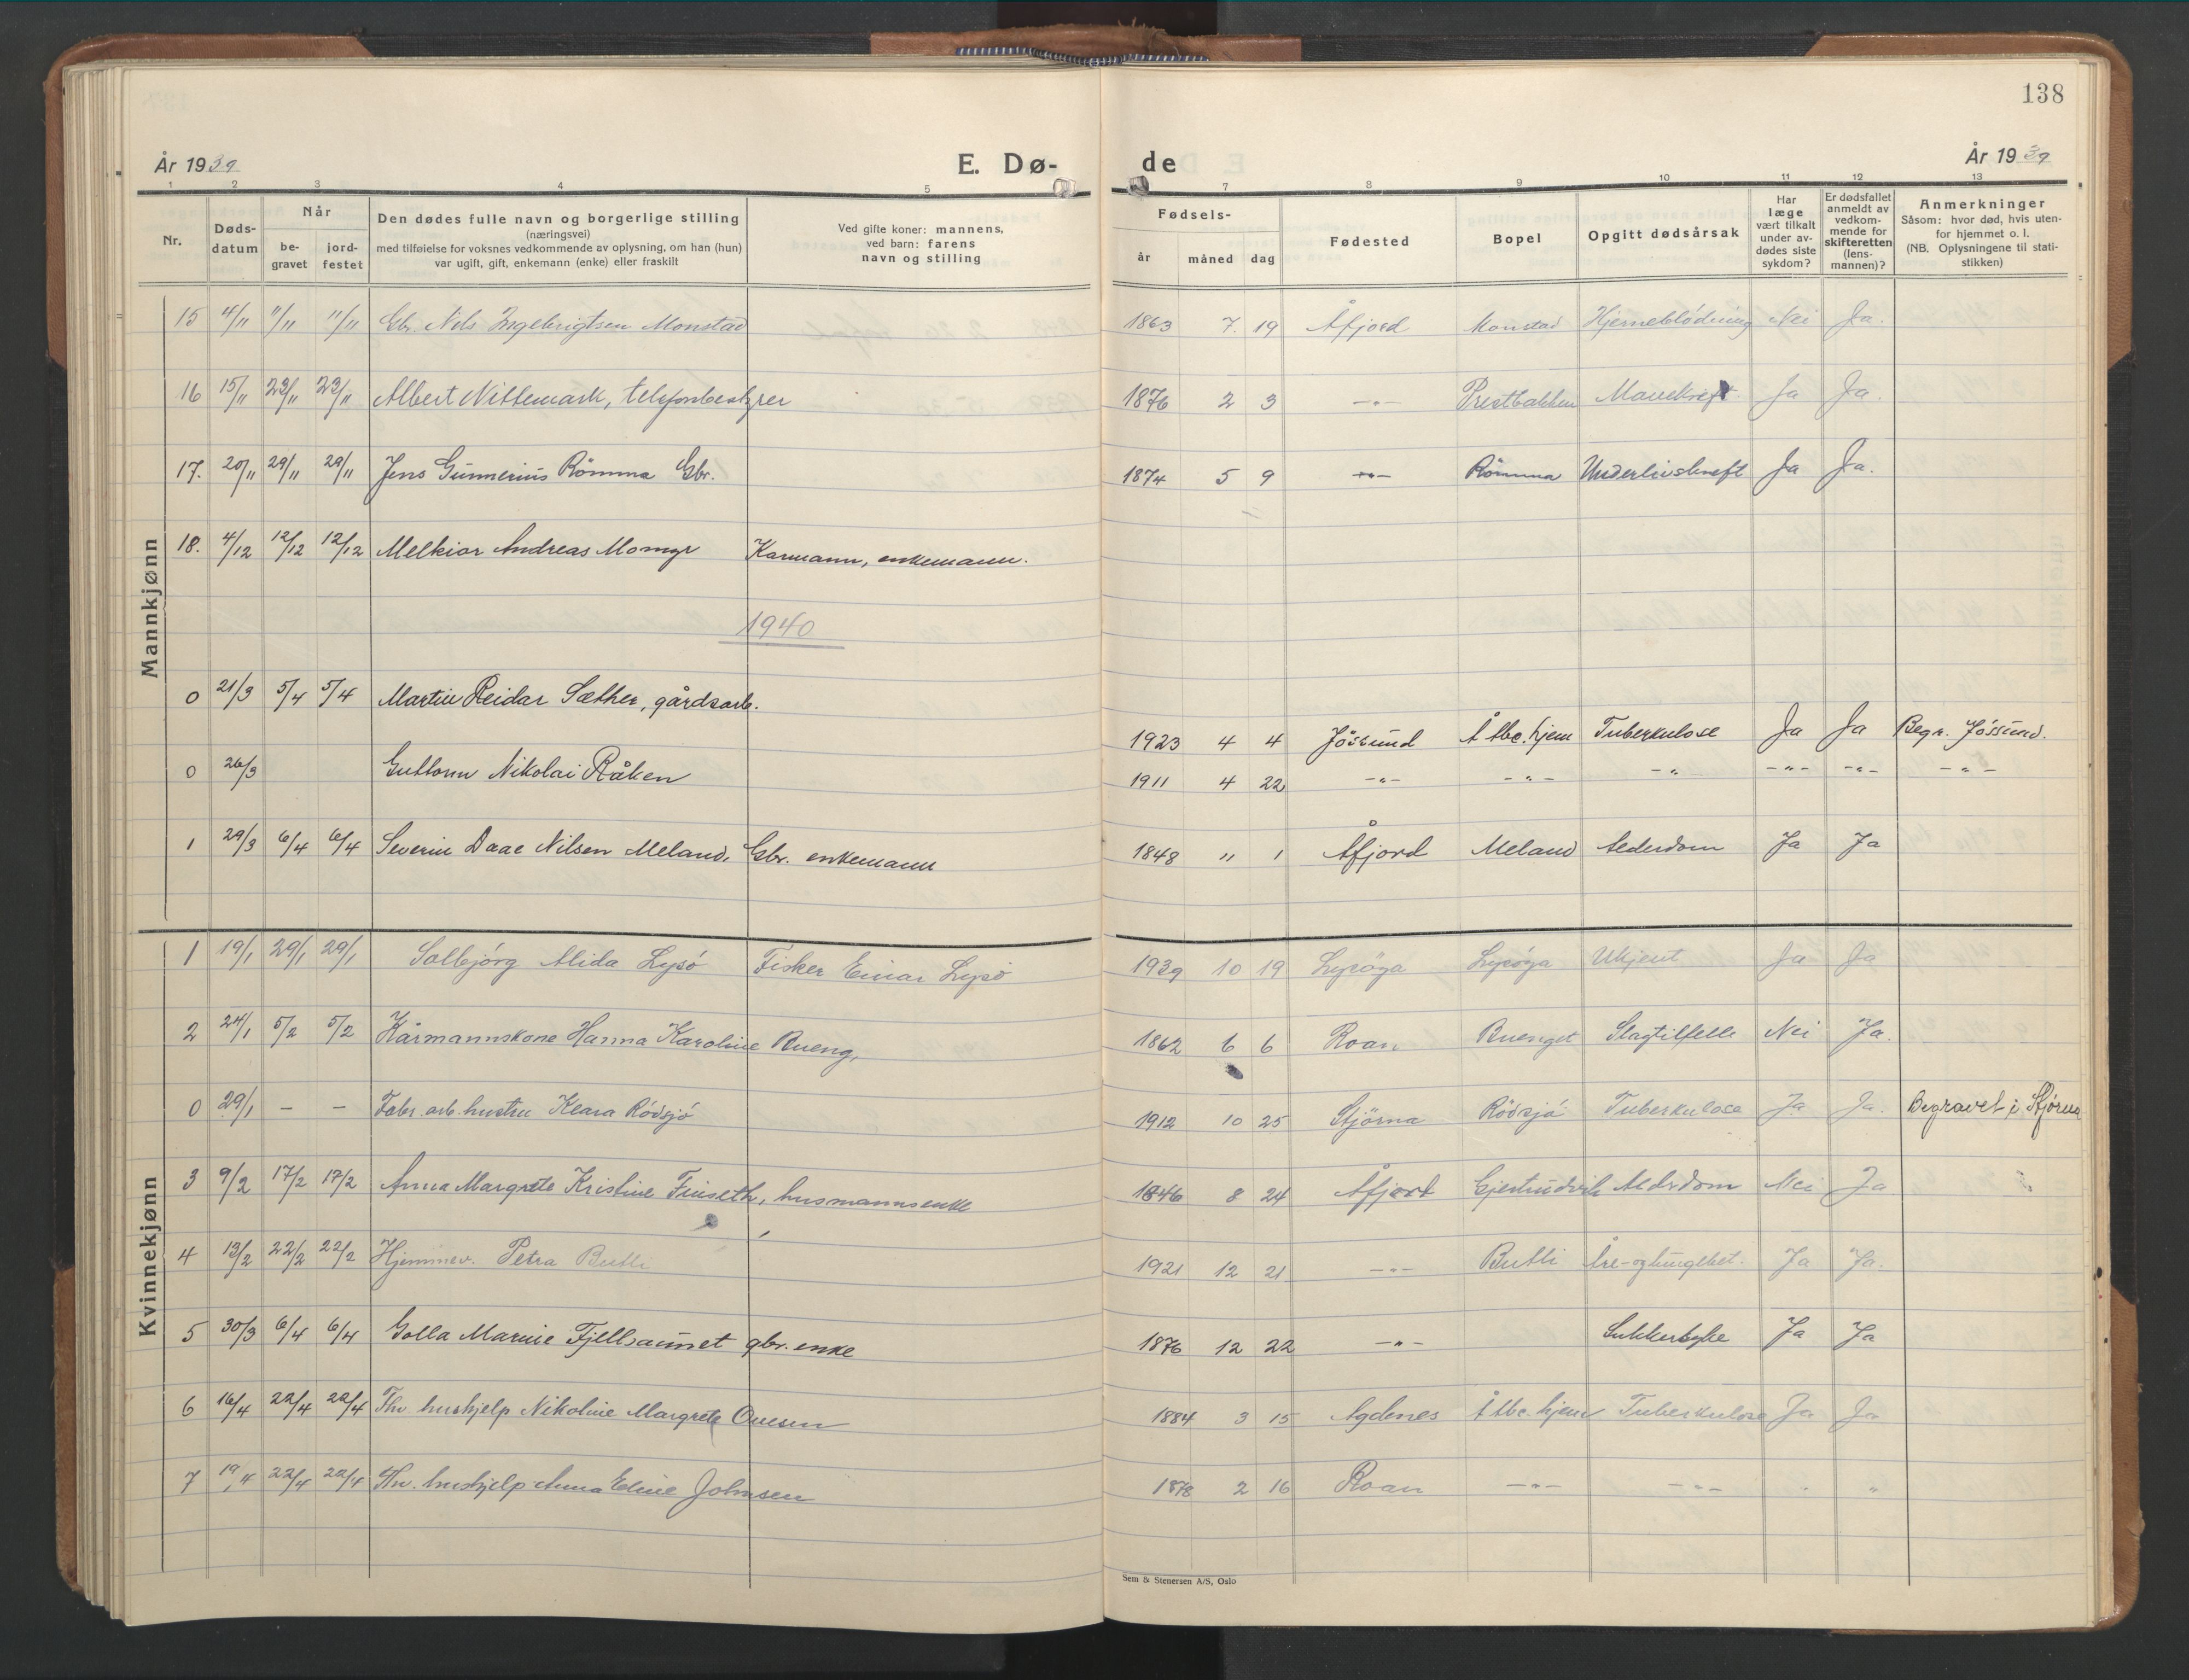 138
År 1939
E. Dø-
de
År 1939
1 2 3 4 5 7 8 9 10 11 12 13
Nr.
Døds-
datum
Når
be-
gravet
jord-
festet
Den dødes fulle navn og borgerlige stilling
(næringsvei)
med tilføielse for voksnes vedkommende av oplysning, om han (hun)
var ugift, gift, enkemann (enke) eller fraskilt
Ved gifte koner: mannens,
ved barn: farens
navn og stilling
Fødsels-
år måned dag
Fødested
Bopel
Opgitt dødsårsak
Har
læge
vært tilkalt
under av-
dødes siste
sykdom?
Er dødsfallet
anmeldt av
vedkom-
mende for
skifteretten
(lens-
mannen)?
Anmerkninger
Såsom: hvor død, hvis uten-
for hjemmet o. l.
(NB. Oplysningene til stati-
stikken)
Mannkjønn
15 4/11 11/11 11/11 Gbr. Nils Ingebrigtsen Monstad 1863 7. 19 Åfjord Monstad Hjerneblödning Nei Ja.
16 15/11 23/11 23/11 Albert Nittemark, telefonbestyrer 1876 2 3 -"- Prestbakken Mavekreft Ja Ja.
17. 20/11 29/11 29/11 Jens Gunnerius Römma Gbr. 1874 5 9 -"- Römma Underlivskreft Ja Ja.
18. 4/12 12/12 12/12 Melkior Andreas Momyr Karmann, enkemann.
1940
0 21/3 5/4 5/4 Martin Reidar Sæther, gårdsarb. 1923 4 4 Jössund Å tbc. hjem Tuberkulose Ja Ja Begr. Jössund.
0 26/3 Guttorm Nikolai Råken 1911 4 22 -"- -"- -"- -"- -"- -"-
1 29/3 6/4 6/4 Severin Daae Nilsen Meland, Gbr. enkemann 1848 11 1 Åfjord Meland Alderdom Ja Ja
Kvinnekjønn
1 19/1 29/1 29/1 Solbjörg Alida Lysö Fisker Einar Lysö 1939 10 19 Lysöya Lysöya Ukjent Ja Ja
2 24/1 5/2 5/2 Kårmannskone Hanna Karoline Rueng, 1862 6 6 Roan Ruenget Slagtilfelle Nei Ja.
0 29/1 - - Fabr. arb. hustru Klara Rödsjö 1912 10 25 Stjörna Rödsjö Tuberkulose Ja Ja. Begravet i Stjörna
3 9/2 17/2 17/2 Anna Margrete Kristine Finseth, husmannsenke 1846 8 24 Åfjord Gjertrudvik Alderdom Nei Ja
4 13/2 22/2 22/2 Hjemmev. Petra Butli 1921 12 21 -"- Butli Ja Ja.
5 30/3 6/4 6/4 Golla Marie Fjellsaunet gbr. enke 1876 12 22 -"- Sukkersyke Ja Ja
6 16/4 22/4 22/4 Fhv. hushjelp Nikoline Margrete Ovesen 1884 3 15 Agdenes Å tbc. hjem Tuberkulose Ja Ja
7 19/4 22/4 22/4 Fhv. hushjelp Anna Eline Johnsen 1878 2 16 Roan -"- -"- " "
Sem & Stenersen A/S, Oslo